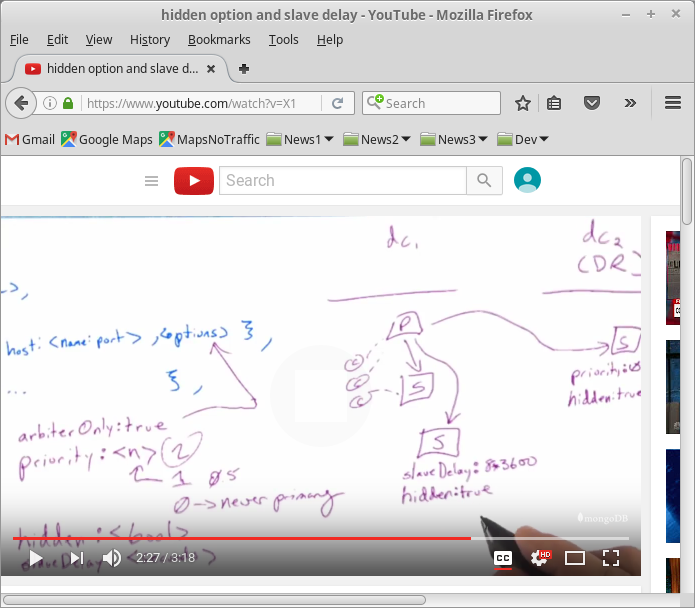 hidden option and slave delay - YouTube - Mozilla Firefox
File Edit View History Bookmarks Tools Help
hidden option and slave d...
https://www.youtube.com/watch?v=X1
Search
Gmail Google Maps MapsNoTraffic News1 News2 News3 Dev
Search
dc1
dc2
(DR)
host: <name:port> , <options> } ,
...
} ,
P
S
S
S
c
c
c
priority:
hidden:true
arbiterOnly:true
priority:<n> 2
1 0 5
0 -> never primary
slaveDelay: 8*3600
hidden:true
hidden:<bool>
slaveDelay:
mongoDB
2:27 / 3:18
CC
HD